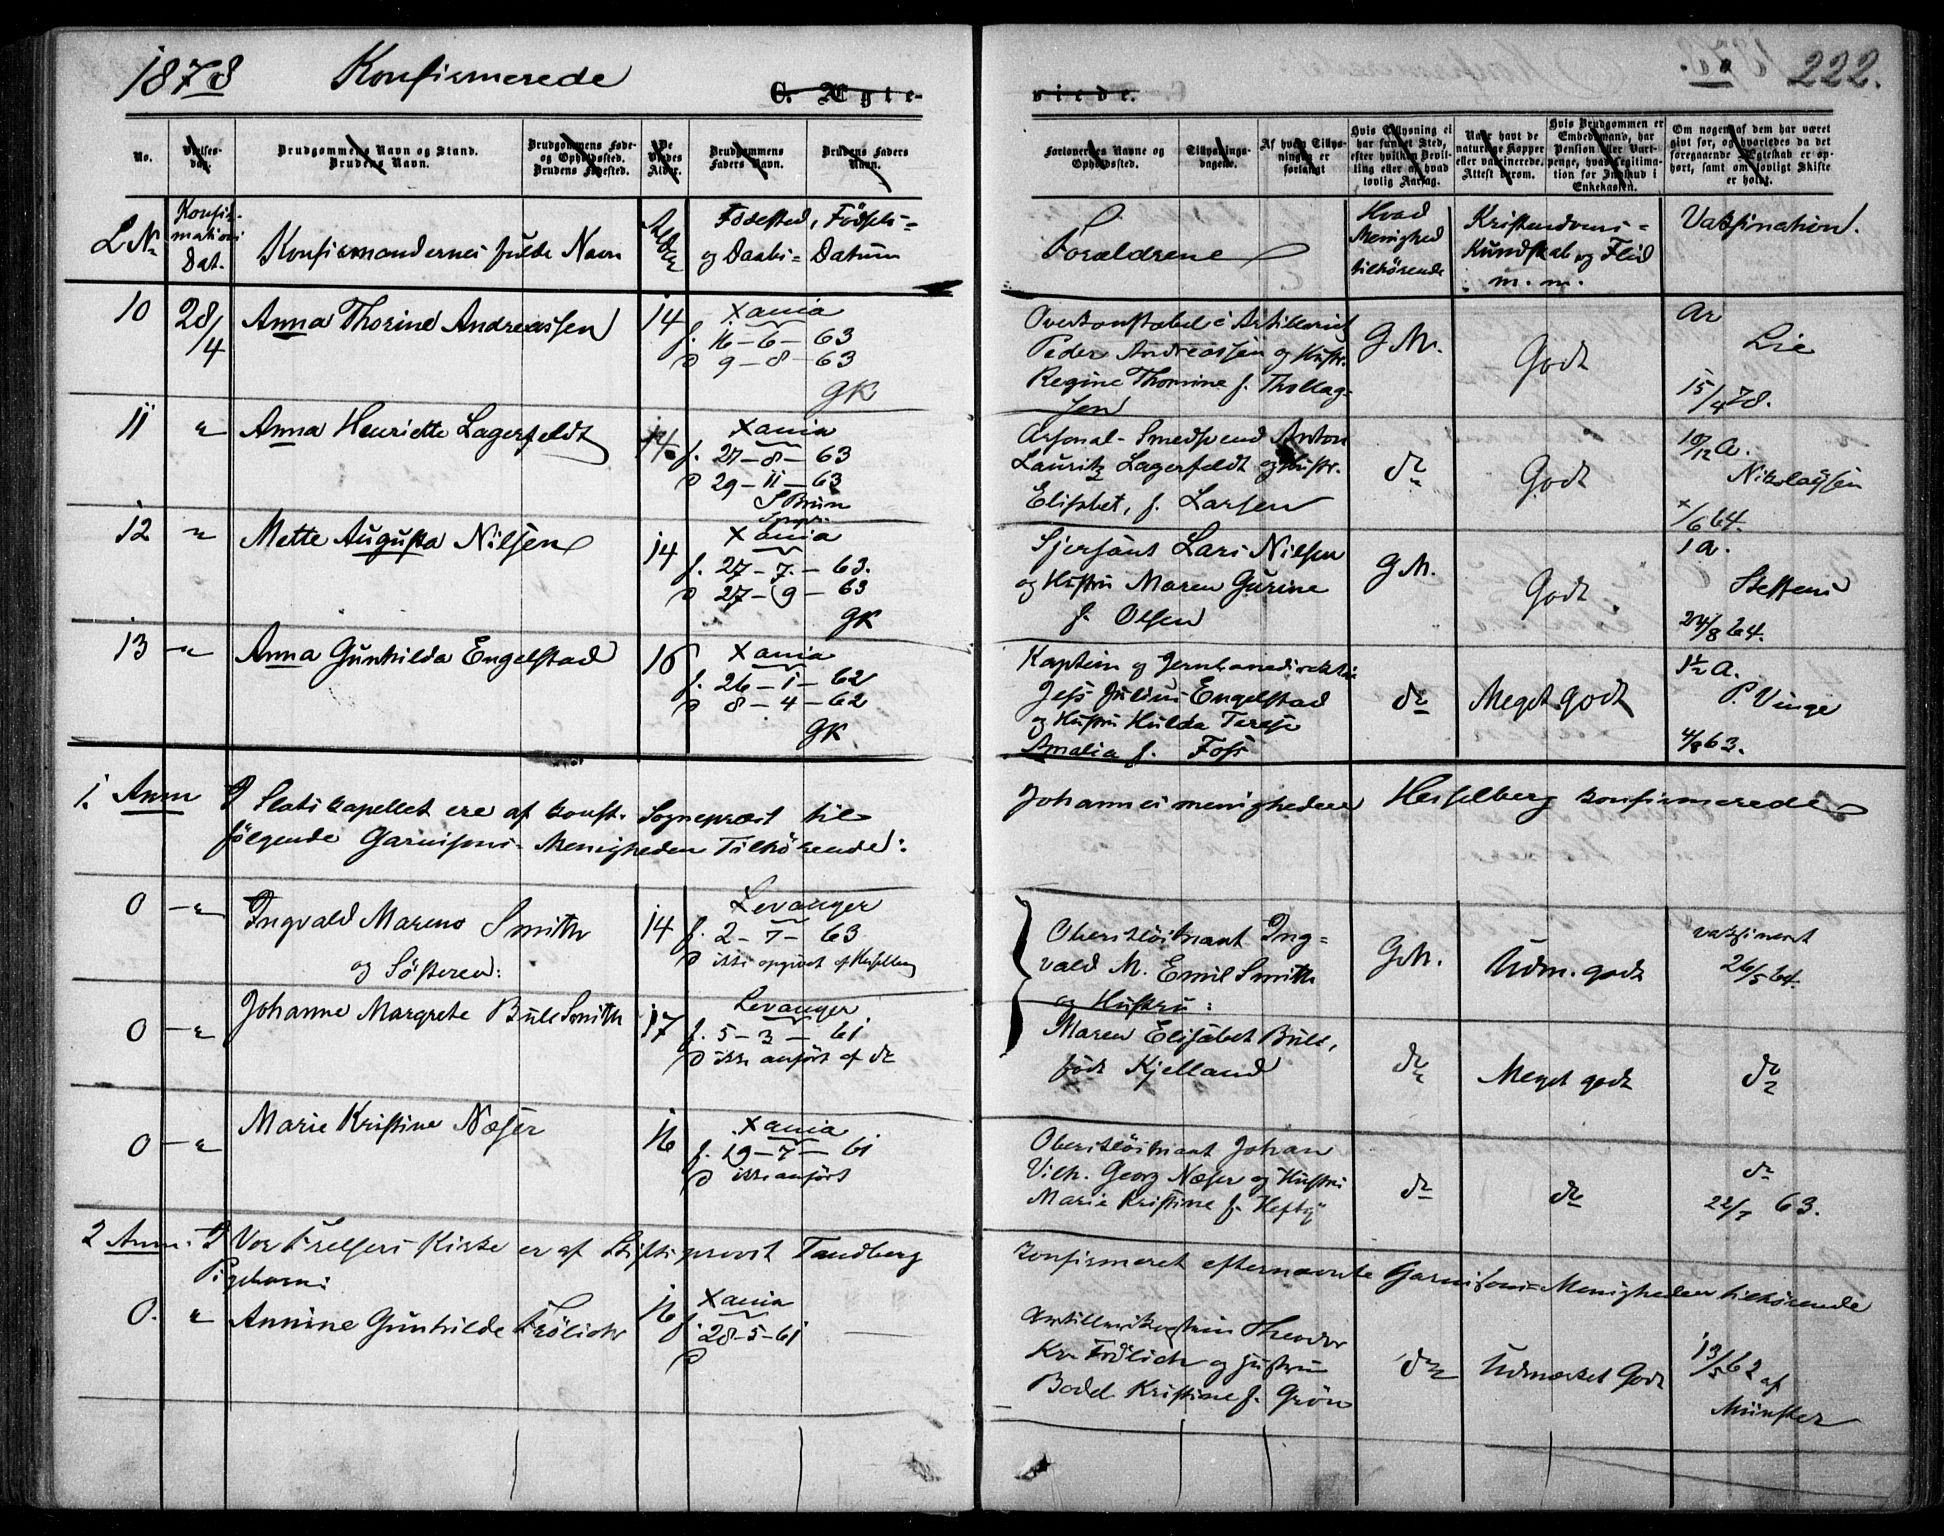 1878 Konfirmerede
C. Ægte-
viede.
222.
No.
Vielses-
dag.
Brudgommens Navn og Stand.
Brudens Navn.
Brudgommens Føde-
og Opholdssted.
Brudens Fødested.
De
Viedes
Alder.
Brudgommens
Faders Navn.
Brudens Faders
Navn.
Forlovernes Navne og
Opholdssted.
Tillysnings-
dagene.
Af hvem Tillys-
ningen er
forlangt
Hvis Tillysning ei
har fundet Sted,
efter hvilken Bevil-
ling eller af hvad
lovlig Aarsag.
Naar havt de
naturlige Kopper
eller vaccinerede.
Attest derom.
Hvis Brudgommen er
Embedsmand, har
Pension eller Vart-
penge, hvad Legitima-
tion for Indskud i
Enkekassen.
Om nogen af dem har været
givt før, og hvorledes da det
foregaaende Ægteskab er op-
hørt, samt om lovligt Skifte
er holdt.
L No
Konfir-
mations
Dat.
Konfirmandernes fulde Navn
Alder
Födested, Födsels-
og Daabs- Datum
Forældrene
Hvad
Menighed
tilhörende
Kristendoms-
Kundskab og Flid
m. m.
Vaksination.
10 28/4 Anna Thorine Andreassen 14
Xania
f. 16-6-63
d 9-8-63
GK
Overkonstabel i Artilleriet
Peder Andreassen og Hustr.
Regine Thomine f. Thollag-
sen
G M.
Godt
ar
Lie
15/4 78.
11 " Anna Henriette Lagerfeldt 14
Xania
f. 27-8-63
d 29-11-63
S Brun
Arsenal-Smedsvend Anton
Lauritz Lagerfeldt og Hustr.
Elisbet, f. Larsen
do
Godt
10/12 a.
Nikolaysen
/6 64.
12 " Mette Augusta Nilsen 14
Xania
f. 27-7-63.
d 27-9-63
GK
Sjersant Lars Nilsen
og Hustru Maren Gurine
f. Olsen
G M.
Godt
1 a.
Steffens
24/8 64.
13 " Anna Gunhilda Engelstad 16
Xania
f. 26-1-62
d 8-4-62
GK
Kaptein og Jernbanedirektör
Jess Julius Engelstad
og Hustru Hulda Terese
Amalia f. Foss
do
Meget godt
1½ a.
P. Vinge
4/8 63.
1. Anm I Slotskapellet ere af konst. Sognepræst til Johannesmenigheden Hesselberg konfirmerede
følgende Garnisons-Menigheden Tilhörende:
0 " Ingvald Mareno Smith 14
og Söstren:
Levanger
f. 2-7-63
d ikke opgivet af Hesselberg
Oberstlöitnant Ing-
vald M. Emil Smith
og Hustru:
G M.
Udm. godt
vaksineret
26/5 64.
0 " Johanne Margrete Bull Smith 17
Levanger
f. 5-3-61
d ikke anfört af do
Maren Elisabet Bull,
födt Kjelland
do
Meget godt
do
0 " Marie Kristine Næser 16
Xania
f. 19-7-61
d ikke anfört
Oberstlöitnant Johan
Vilh. Georg Næser og Hustru
Marie Kristine f. Heftÿ
do
do
do
22/7 63.
2 Anm. I Vor Frelsers Kirke er af Stiftsprovst Tandberg konfirmeret efternævnte Garnisons-Menigheden tilhörende
Pigebarn:
0. " Annine Gunhilde Frölich 16
Xania
f 28-5-61
d
Artillerikaptein Theodor
Kr. Frölich og Hustru
Bodel Kristine f. Grön
do
Udmærket Godt
13/5 62 af
Münster